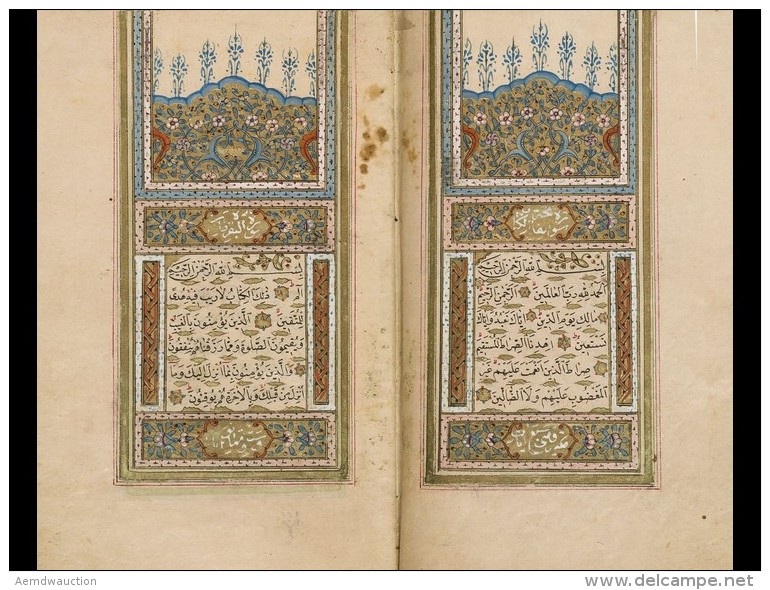 سورة فاتحة الكتاب
بسم الله الرحمن الرحيم
الحمد لله رب العالمين الرحمن الرحيم
مالك يوم الدين اياك نعبد واياك
نستعين اهدنا الصراط المستقيم
صراط الذين انعمت عليهم غير
المغضوب عليهم ولا الضالين
سورة البقرة
بسم الله الرحمن الرحيم
الم ذلك الكتاب لا ريب فيه هدى
للمتقين الذين يؤمنون بالغيب
ويقيمون الصلوة ومما رزقناهم ينفقون
والذين يؤمنون بما انزل اليك وما
انزل من قبلك وبالاخرة هم يوقنون
Aemdwauction
delcampe.net